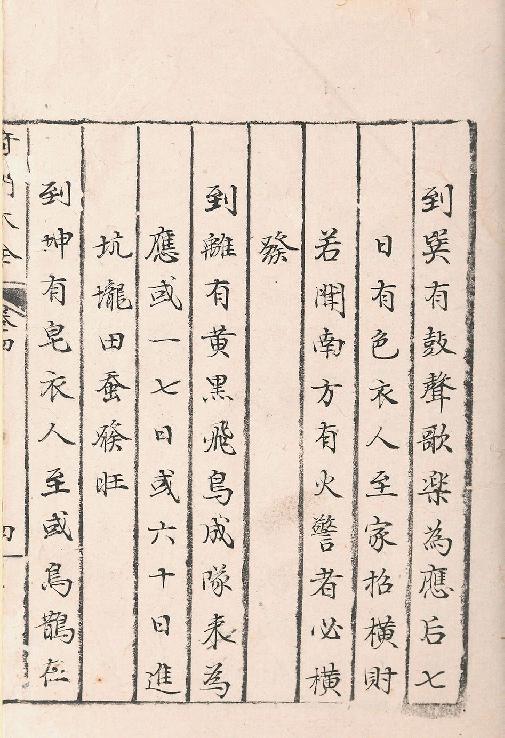 到巽有鼓聲歌楽為應后七
日有色衣人至家招橫財
若聞南方有火警者必橫
發
到離有黃黑飛鳥成隊来為
應或一七日或六十日進
坑壠田蚕發旺
到坤有皂衣人至或烏鵲在
奇門大全 卷四 四